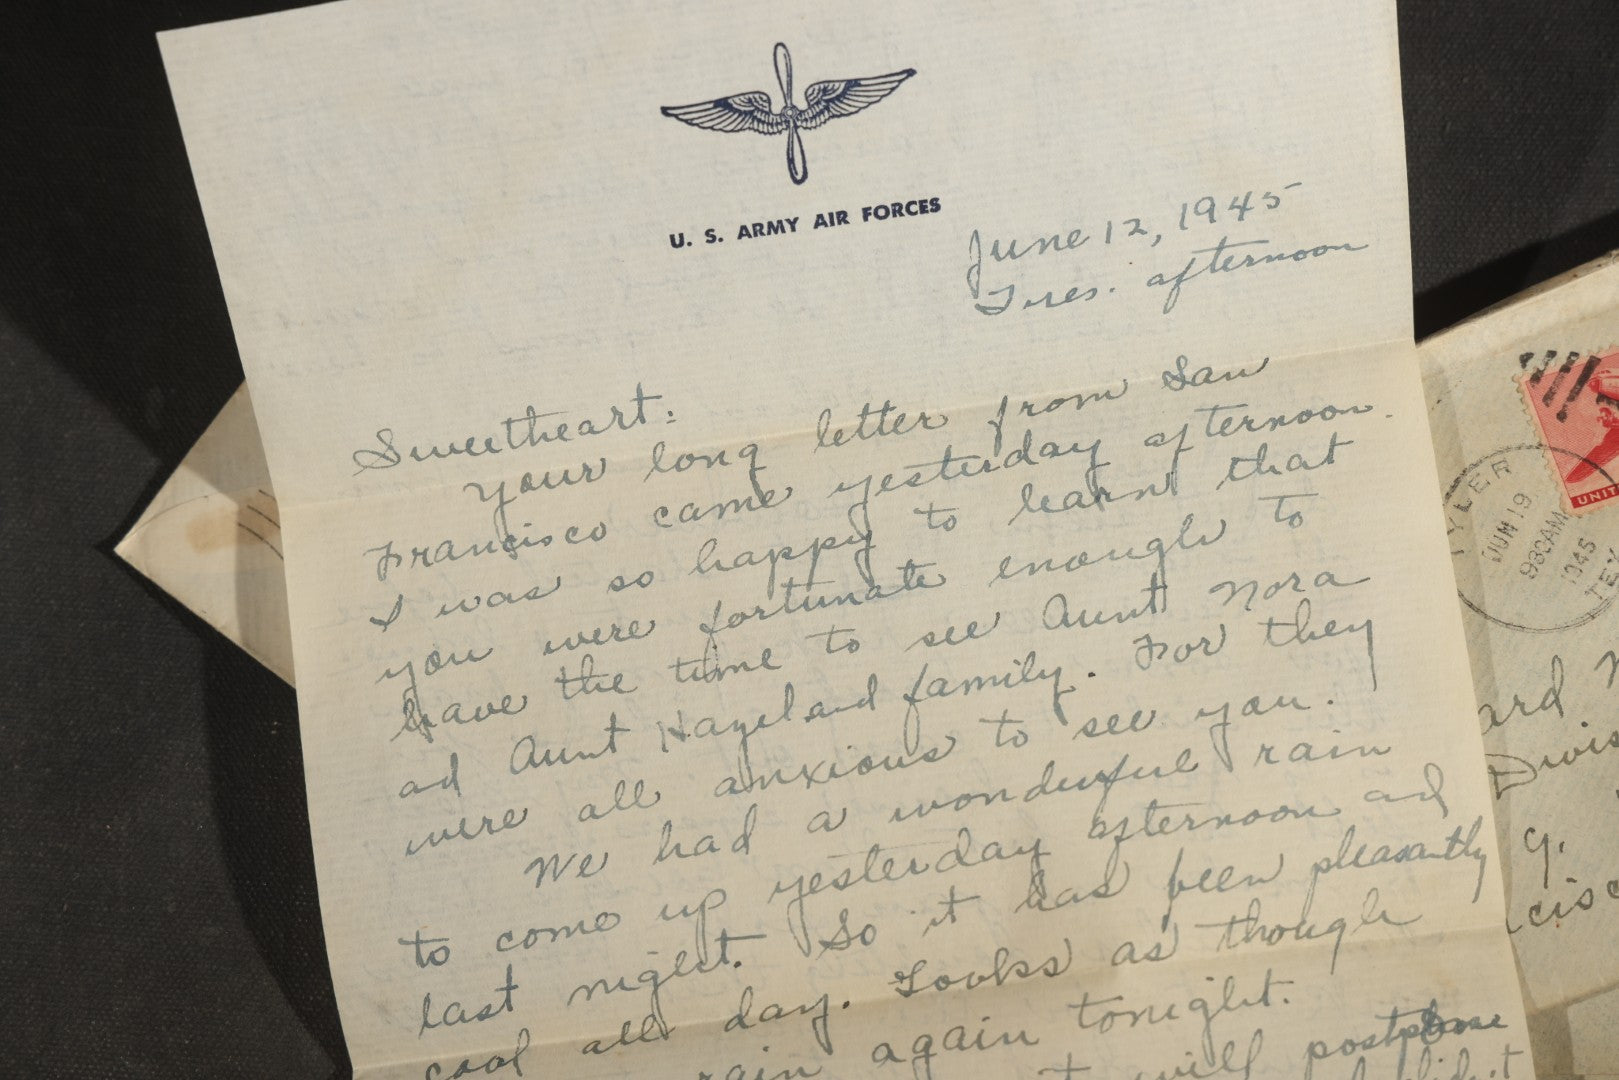 U. S. ARMY AIR FORCES
June 12, 1945
Tues. afternoon
Sweetheart:
Your long letter from San
Francisco came yesterday afternoon.
I was so happy to learn that
you were fortunate enough to
have the time to see Aunt Nora
ad Aunt Hazel and family. For they
were all anxious to see you.
We had a wonderful rain
to come up yesterday afternoon ad
last night. So it has been pleasantly
cool all day. Looks as though
rain again tonight.
will postpone
UNIT
TYLER
JUN 19
930AM
1945
TEX
ard
Divis
y.
cisc